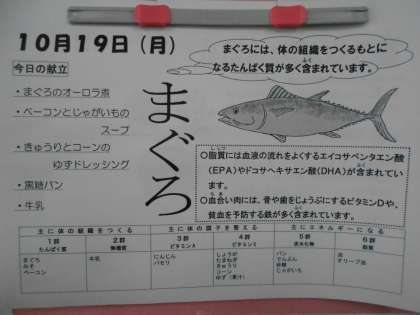 10月19日(月)
まぐろには、体の組織をつくるもとに
なるたんぱく質が多く含まれています。
今日の献立
・まぐろのオーロラ煮
・ベーコンとじゃがいもの
スープ
・きゅうりとコーンの
ゆずドレッシング
・黒糖パン
・牛乳
まぐろ
○脂質には血液の流れをよくするエイコサペンタエン酸
(EPA)やドコサヘキサエン酸(DHA)が含まれてい
ます。
○血合い肉には、骨や歯をじょうぶにするビタミンDや、
貧血を予防する鉄が多く含まれています。
主に体の組織をつくる 主に体の調子を整える 主にエネルギーになる
1群 2群 3群 4群 5群 6群
たんぱく質 無機質 ビタミンA ビタミンC 炭水化物 脂質
まぐろ 牛乳 にんじん しょうが パン 油
みそ パセリ たまねぎ でんぷん オリーブ油
ベーコン きゅうり 砂糖
コーン じゃがいも
ゆず(果汁)